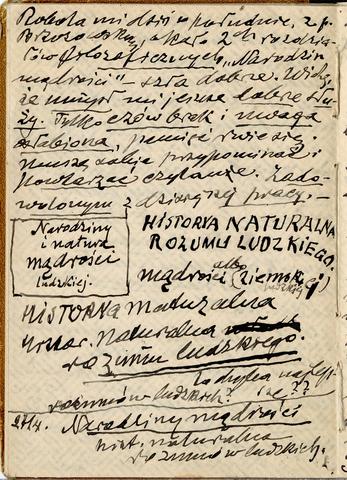 Robota mi dziś w południe, z p.
Brzozowską, około 2ch rozdzia-
łów filozoficznych „Narodzin
mądrości" – szła dobrze. Widzę,
że umysł mi jeszcze dobrze słu-
ży. Tylko oczów brak i uwaga
osłabiona, pamięć rwie się,
muszę sobie przypominać i
powtarzać czytanie. Zado-
wolonym z dzisiejszej pracy. –
Narodziny
i natura
mądrości
ludzkiej.
HISTORYA NATURALNA
ROZUMU LUDZKIEGO.
albo
mądrości (ziemskiej
ludzkiej)
HISTORYA naturalna
Histor. naturalna
rozumu ludzkiego.
rozumów ludzkich?
27/4. Narodziny mądrości
hist. naturalna
rozumów ludzkich.